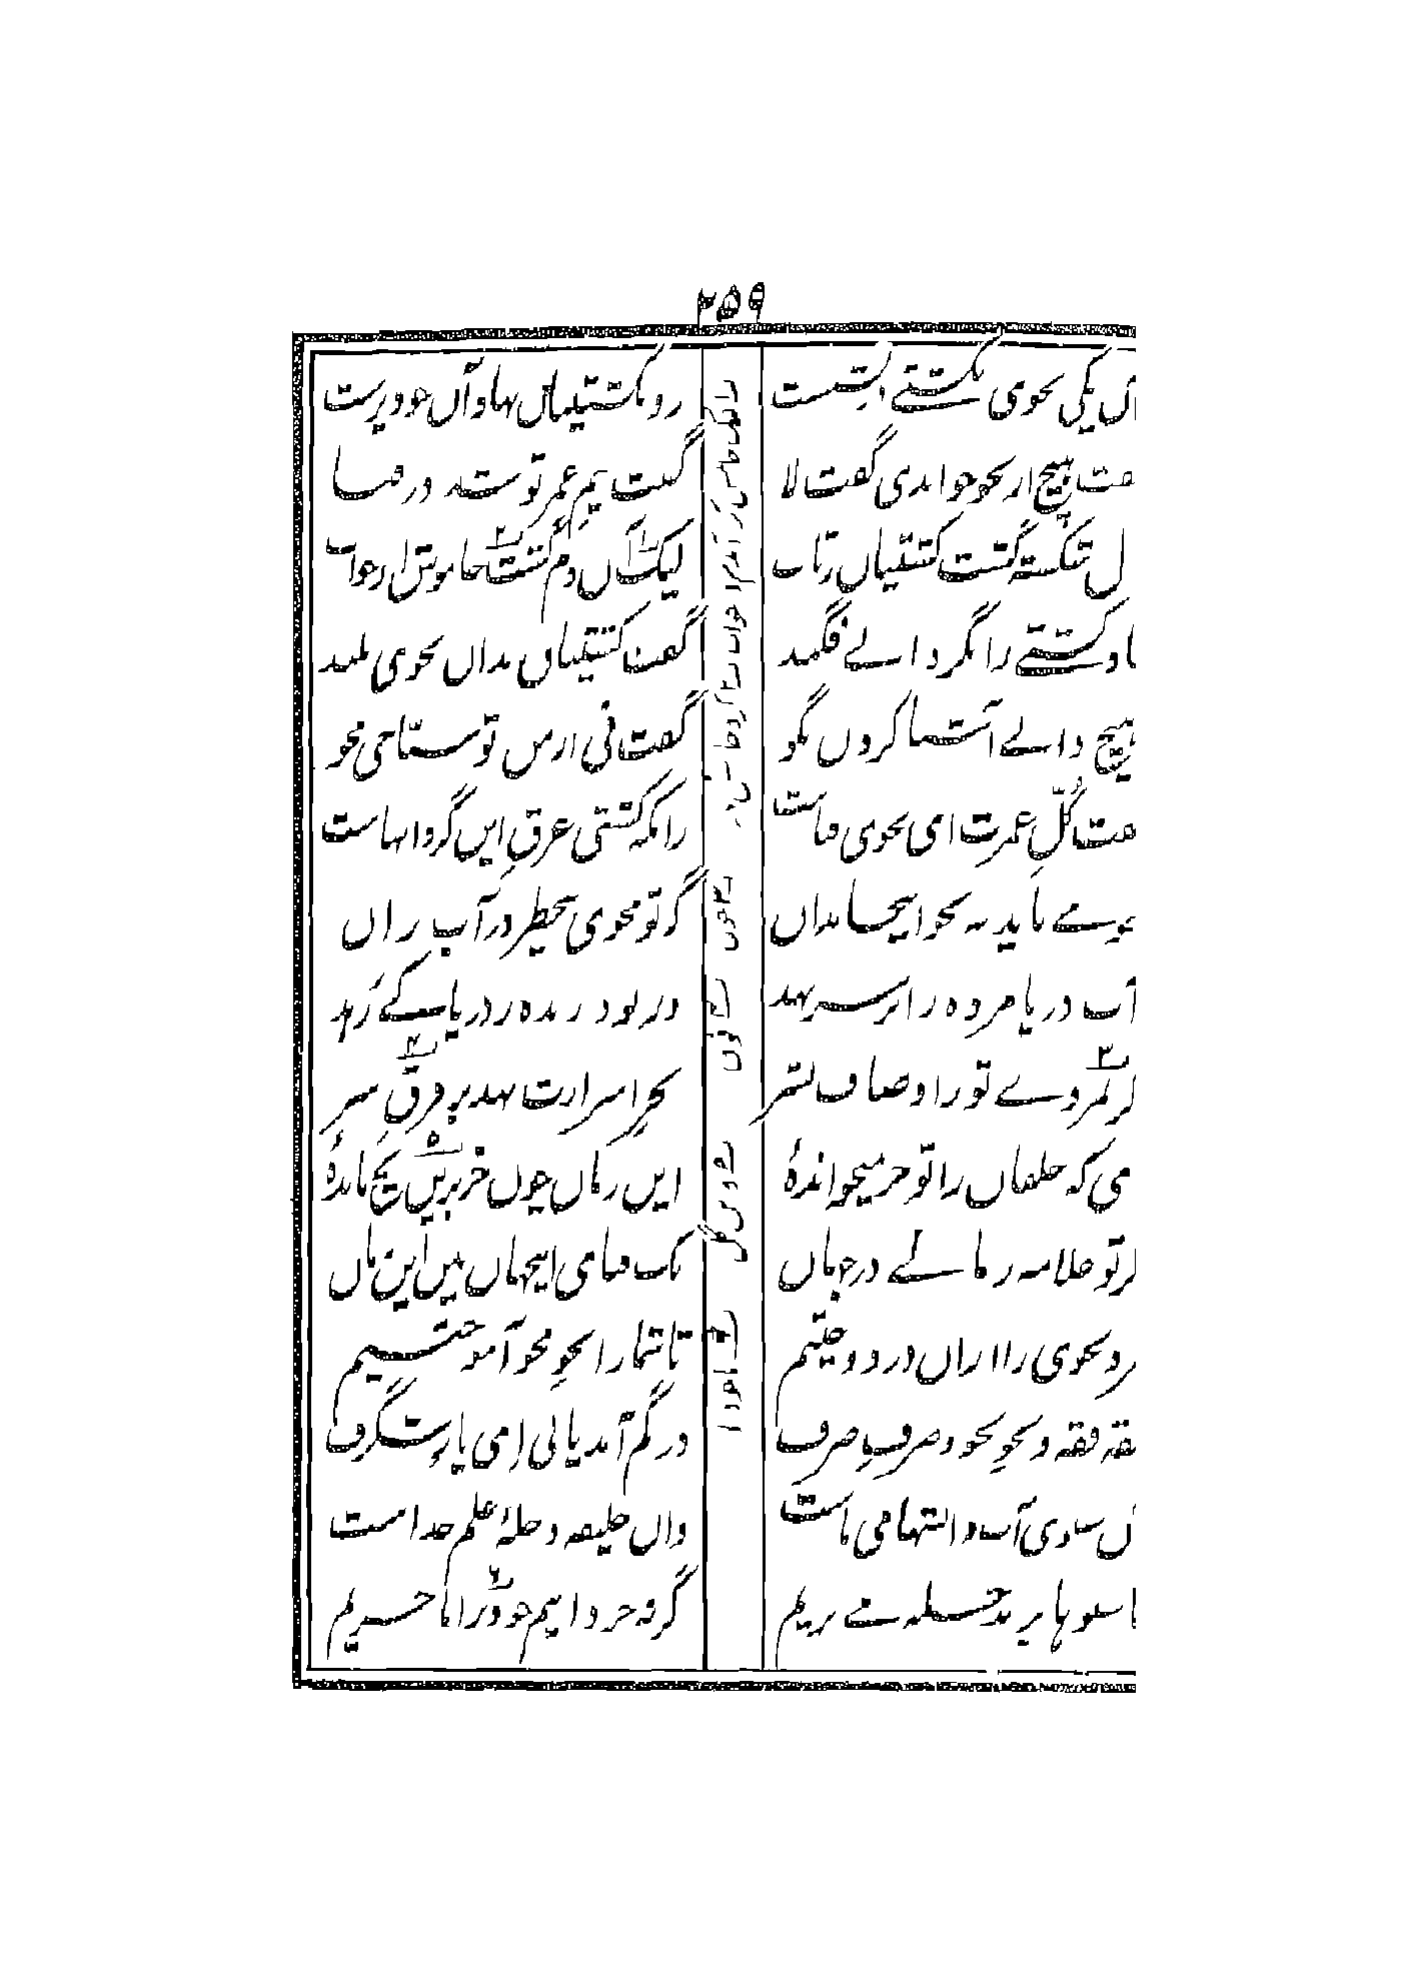 ۲۵۹
آں یکی نحوی بکشتے در نشست
رو بکشتیباں نہاد آں خود پرست
گفت ہیچ از نحو خواندی گفت لا
گفت نیم عمر تو شد در فنا
دل شکستہ گشت کشتیباں ز تاب
لیک آں دم گشت خاموش از جواب
باد کشتے را بگردابے فگند
گفت کشتیباں بداں نحوی بلند
ہیچ دانے آشنا کردن بگو
گفت نی از من تو سبّاحی مجو
گفت کلِّ عمرت ای نحوی فناست
زانکہ کشتی غرقِ ایں گردابہاست
محوے باید نہ نحو اینجا بداں
گر تو محوی بیخطر در آب راں
آب دریا مردہ را بر سر نہد
ور بود زندہ ز دریا کے رہد
گر بمردے تو ز اوصاف بشر
بحر اسرارت نہد بر فرقِ سر
می کہ خلقاں را تو خر میخواندۂ
ایں زماں چوں خر بریں یخ ماندۂ
گر تو علامہ زمانے در جہاں
نک فنای اینجہاں بیں ایں زماں
مرد نحوی را ازاں در دوختیم
تا شما را نحوِ محو آموختیم
فقہ فقہ و نحوِ نحو و صرفِ صرف
در کم آمد یابی ای یارِ شگرف
آں سبوی آب دانشہای ماست
واں خلیفہ دجلۂ علم خداست
ما سبوہا پر بدجلہ مے بریم
گرنہ خر دانیم خود را ما خریم